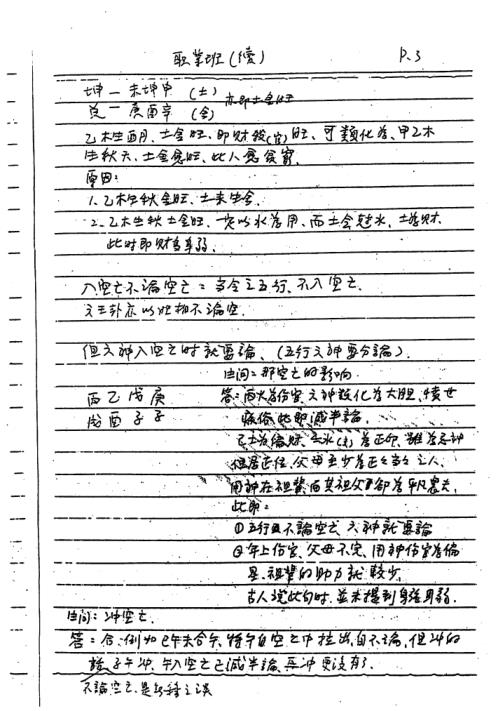 职業班(續) P.3
坤－未坤申 (土) 亦即土金旺
兌－庚酉辛 (金)
乙木生酉月、土金旺、即財殺(官)旺、可類化為、甲乙木
生秋天、土金愈旺、此人愈貧窮
原因：
1、乙木生秋金旺、土来生金.
2、乙木生秋土金旺、一定以水為用、而土会尅水、土為財
此時即財多身弱.
入空亡不論空亡：當令之五行、不入空亡.
文王卦亦以旺相不論空.
但六神入空亡時就要論、(五行六神要分論).
生問：那空亡的影响
丙乙戊庚 答：丙火為傷官、六神類化為大胆、憤世
戌酉子子 疾俗此即減半論.
己土為偏財、壬水 為正印、雖為忌神
但居正位、父母至少為正正當當之人、
用神在祖業、而其祖父却為平凡農夫.
此即：
①五行且不論空亡、六神就要論
②年上傷官、父母不完、用神傷官為偏
星、祖業的助力就較少.
古人說此句時、並未提到身強身弱.
生問：冲空亡.
答：合、例如巳午未合午、將午自空亡中拉出、自不論、但冲的
話、子午冲、午入空亡已減半論、再冲更没有了.
不論空亡、是於種之誤